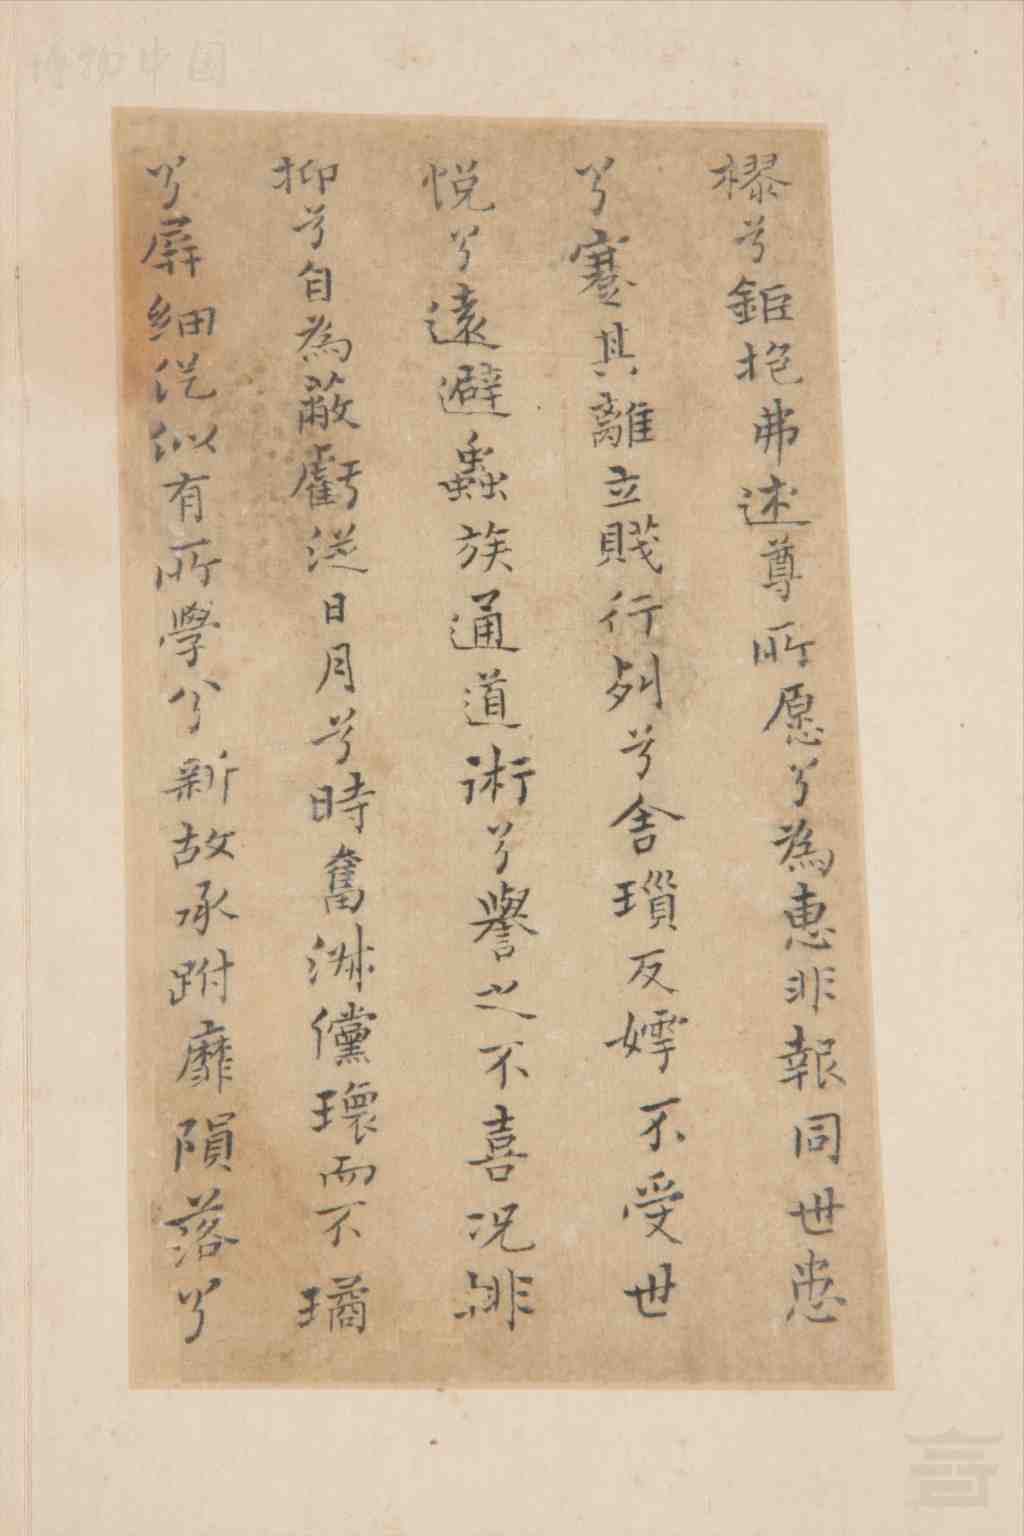 樛兮鉅抱弗述尊所愿兮為惠非報同世患
兮蹇其離立賤行列兮舍瑣反嫭不受世
悦兮遠避蟊族通道術兮譽之不喜况誹
抑兮自為蔽虧從日月兮時奮淋儻瓌而不璚
兮屏細從似有所學兮新故承跗靡隕落兮
博物中国